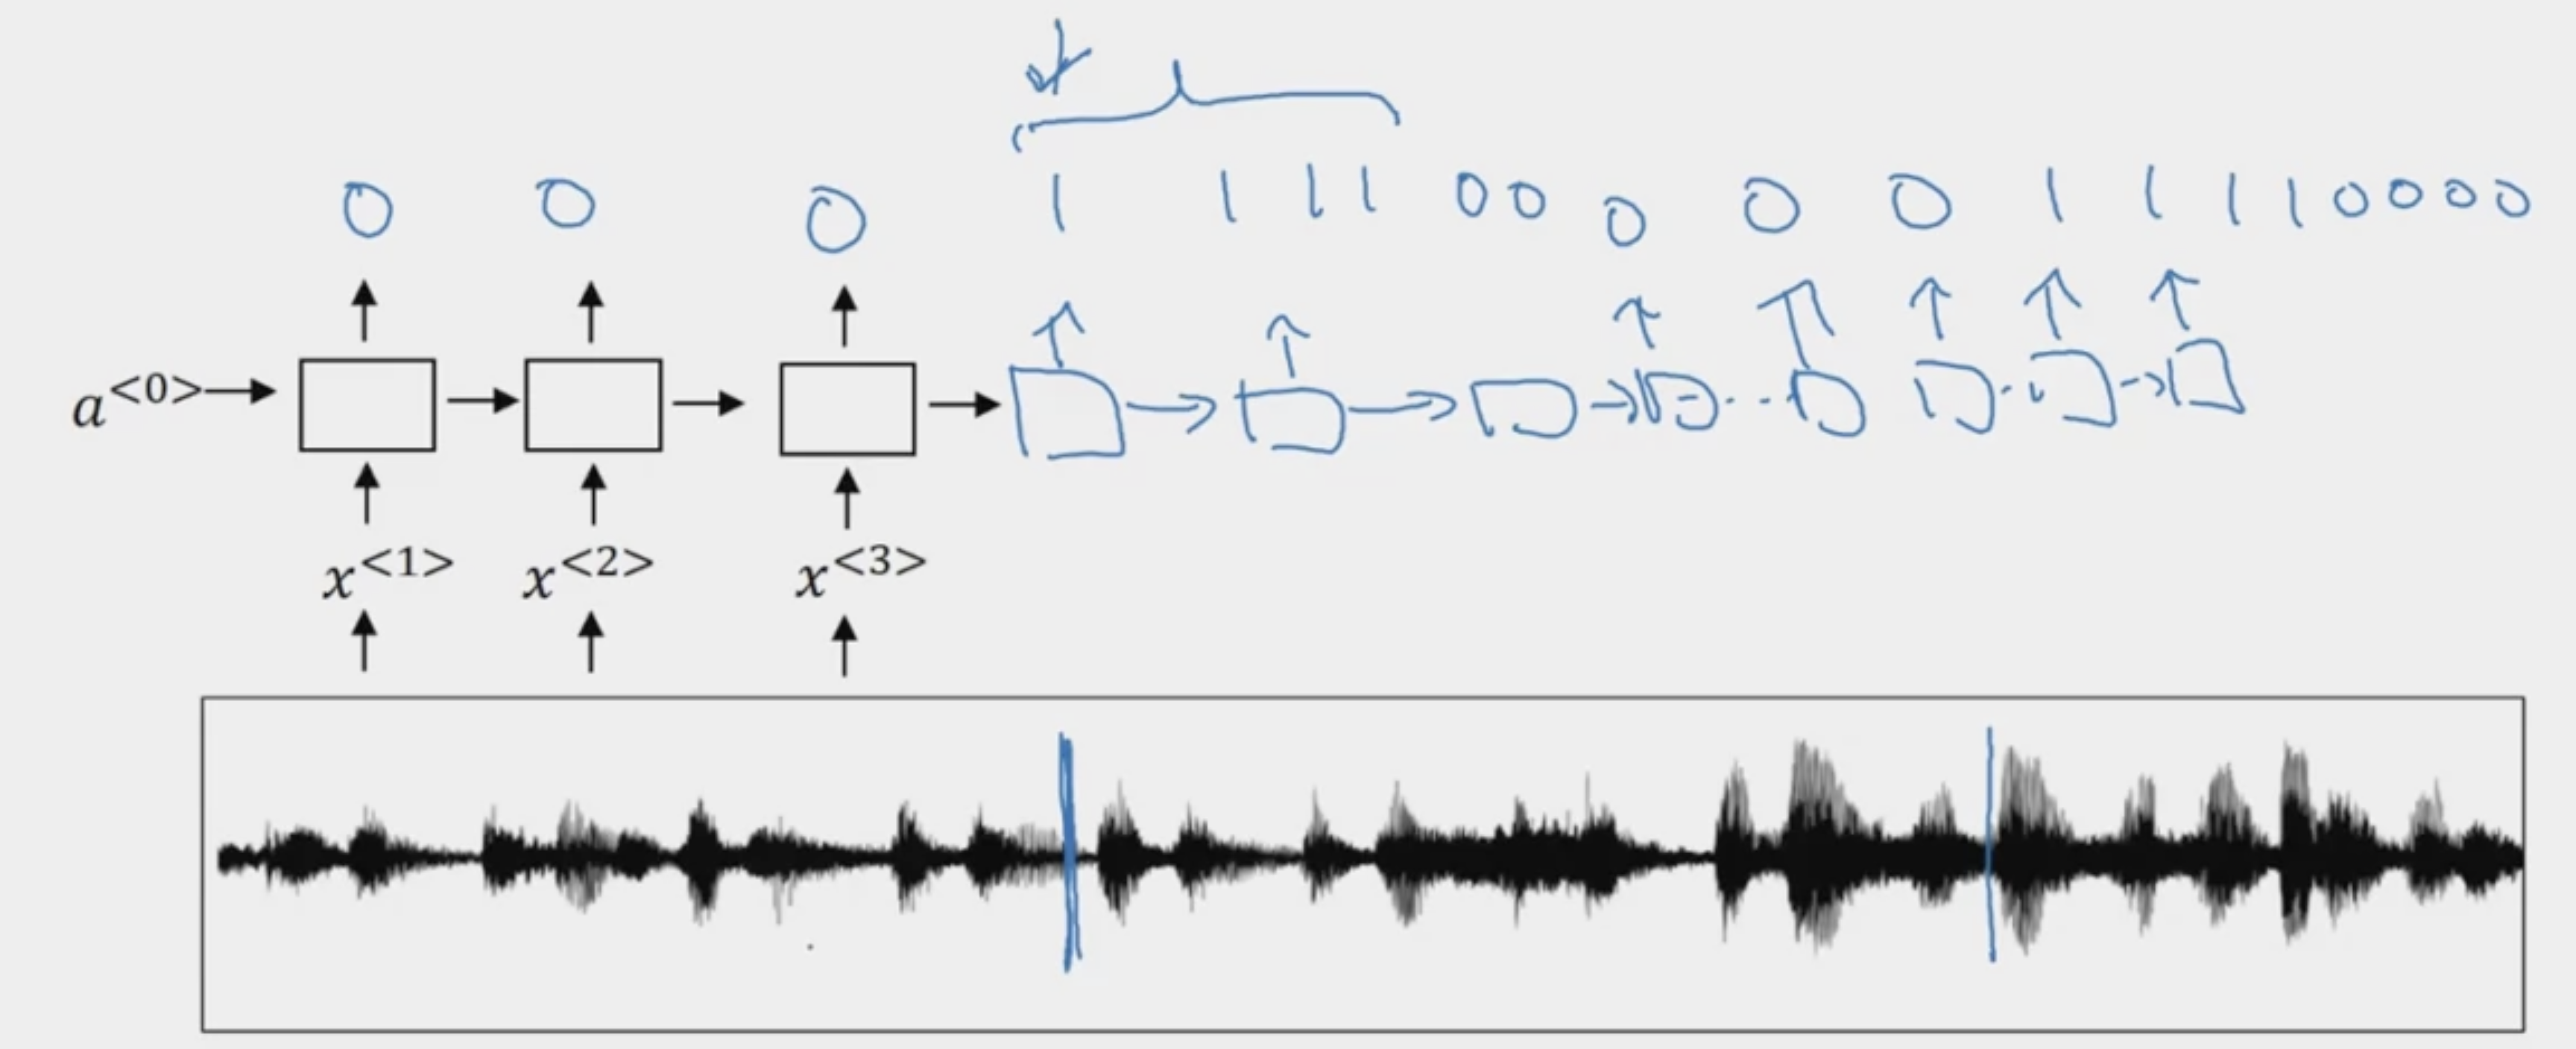 0 0 0 1 1 1 1 0 0 0 0 0 1 1 1 1 0 0 0 0
a<0>
x<1> x<2> x<3>